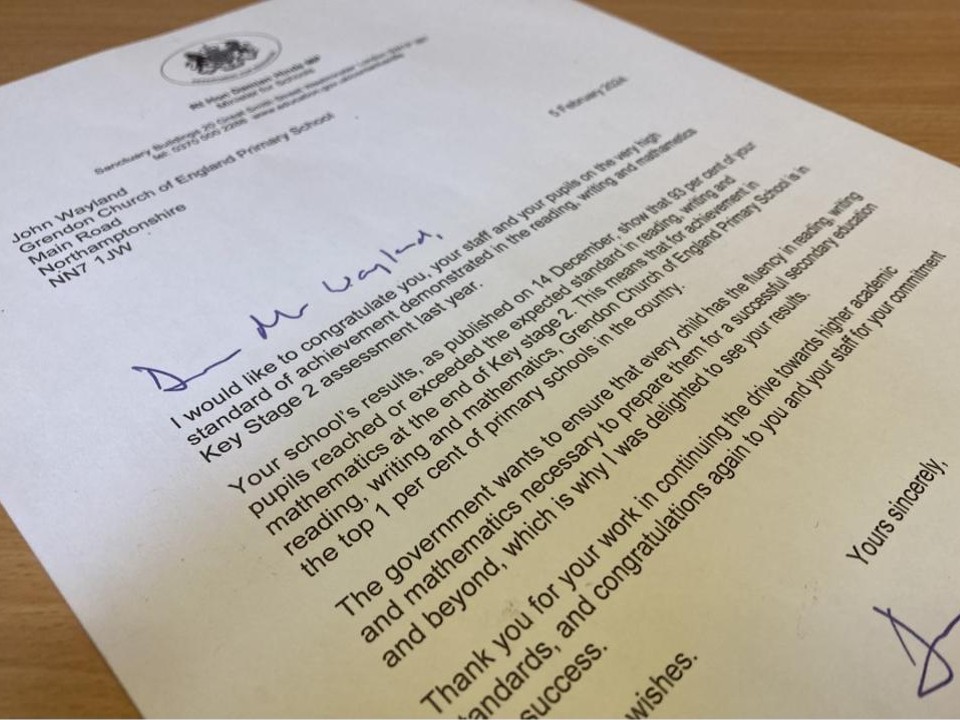 Rt Hon Damian Hinds MP
Minister for Schools
Sanctuary Buildings 20 Great Smith Street Westminster London
tel: 0370 000 2288 www.education.gov.uk
5 February 2024
John Wayland
Grendon Church of England Primary School
Main Road
Northamptonshire
NN7 1JW
Dear Mr Wayland,
I would like to congratulate you, your staff and your pupils on the very high
standard of achievement demonstrated in the reading, writing and mathematics
Key Stage 2 assessment last year.
Your school's results, as published on 14 December, show that 93 per cent of your
pupils reached or exceeded the expected standard in reading, writing and
mathematics at the end of Key stage 2. This means that for achievement in
reading, writing and mathematics, Grendon Church of England Primary School is in
the top 1 per cent of primary schools in the country.
The government wants to ensure that every child has the fluency in reading, writing
and mathematics necessary to prepare them for a successful secondary education
and beyond, which is why I was delighted to see your results.
Thank you for your work in continuing the drive towards higher academic
tandards, and congratulations again to you and your staff for your commitment
success.
wishes.
Yours sincerely,